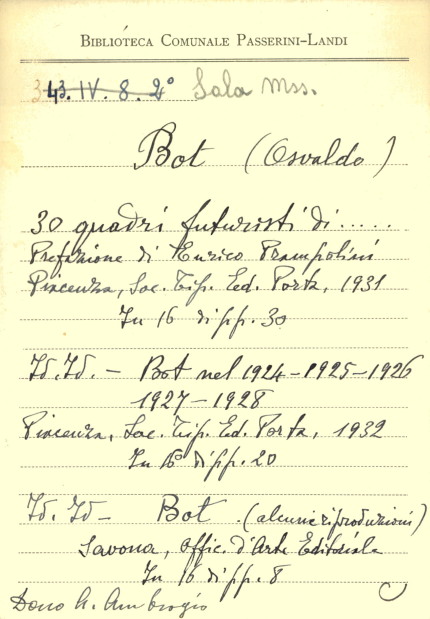 BIBLIOTECA COMUNALE PASSERINI-LANDI
43. IV. 8. 2° Sala Mss.
Bot (Osvaldo)
30 quadri futuristi di.....
Prefazione di Enrico Prampolini
Piacenza, Soc. Tip. Ed. Porta, 1931
In 16 di pp. 30
Id. Id. - Bot nel 1924-1925-1926
1927-1928
Piacenza, Soc. Tip. Ed. Porta, 1932
In 16° di pp. 20
Id. Id - Bot . (alcune riproduzioni)
Savona, Offic. d'Arte Editoriale
In 16 di pp. 8
Dono A. Ambrogio